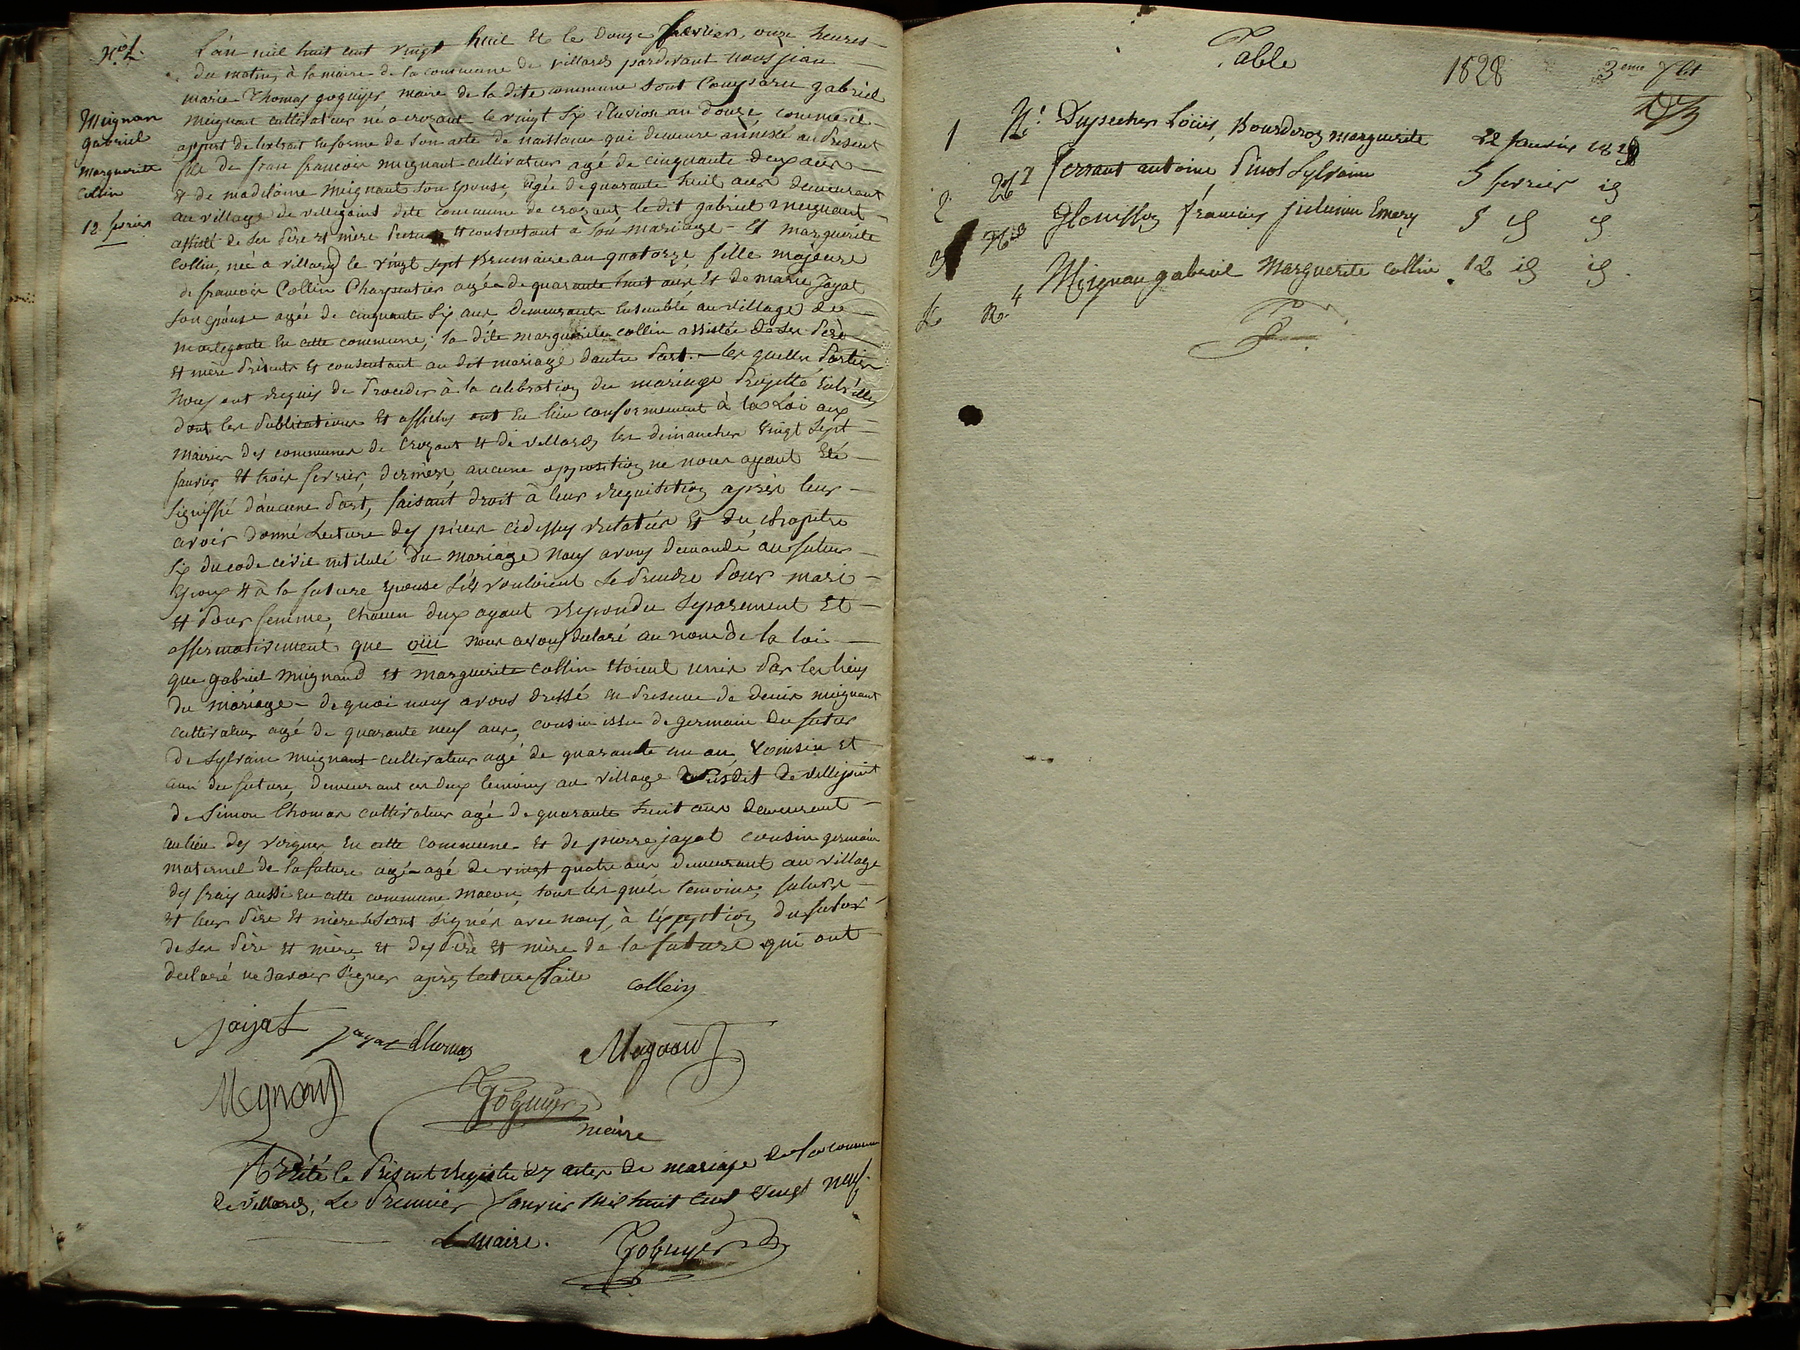 N° 4.
Meignan
gabriel
Marguerite
Collin
12 fevrier
L'an mil huit cent vingt huit et le douze fevrier, onze heures
du matin, à la mairie de la commune de villard pardevant nous jean
marie Thomas goguyer maire de la dite commune sont Comparu gabriel
meignant cultivateur né a crozant le vingt six an douze comme il
appert de l'extrait en forme de son acte de naissance qui demeure annexé au présent
fils de francois meignant cultivateur agé de cinquante deux ans
et de madelaine meignant son epouse, agée de quarante huit ans demeurant
au village de villejoint dite commune de crozant, le dit gabriel meignant
assisté de ses père et mère présents et consentant a son mariage - Et marguerite
Collin, née a villard le vingt sept Brumaire an quatorze fille majeure
de francois Collin Charpentier agé de quarante huit ans et de marie Jayat
son epouse agée de cinquante six ans demeurants ensemble au village de
en cette commune; la dite marguerite collin assistée de ses père
et mère présents et consentant au dit mariage d'autre part. - les quelles parties
nous ont requis de proceder à la celebration du mariage projetté entr'elles
dont les publications et affiches ont eu lieu conformement à la Loi aux
mairies des communes de Crozant et de villard les dimanches vingt sept
janvier et trois fevrier dernier, aucune opposition ne nous ayant eté
signiffié d'aucune part, faisant droit à leur requisition après leur
avoir donné lecture des pièces cidessus relatées et du chapitre
six du code civil intitulé du mariage nous avons demandé au futur
epoux et à la future epouse s'ils vouloient se prendre pour mari
et pour femme, chacun d'eux ayant repondu separement et
affirmativement que oüi nous avons declaré au nom de la loi
que gabriel meignand et marguerite collin etoient unis par les liens
du mariage - de quoi nous avons dressé en presence de denis meignant
cultivateur agé de quarante neuf ans, cousin issu de germain du futur
de Sylvain meignant cultivateur agé de quarante un an, Cousin et
ami du future, demeurant ces deux temoins au village de Villejoint
de Simon thomas cultivateur agé de quarante huit ans demeurant
au lieu des vergnes en cette commune et de pierre jayat cousin germain
maternel de la future agé de vingt quatre ans, demeurant au village
des frais aussi en cette commune macon, tous les quels temoins, future
et leur père et mère signés avec nous, à l'exception du futur
de ses père et mère et des père et mère de la future qui ont
declaré ne savoir signer après lecture faite
Collein
jaijat jayat thomas Megnant
Megnant Goguyer
maire
Arrêté le présent registre des actes de mariage de la commune
de villard, Le Premier janvier mil huit cent vingt neuf.
Le maire. Goguyer
Table 1828 3eme
1 N° 1 Dupecher Loüis, Bourderoz marguerite 22 janvier 1828
2 N° 2 ferrant antoine Pinot Sylvaine 5 fevrier id
3 N° 3 francois julienne Emery 5 id id
4 N° 4 Meignan gabriel Marguerite Collin 12 id id.